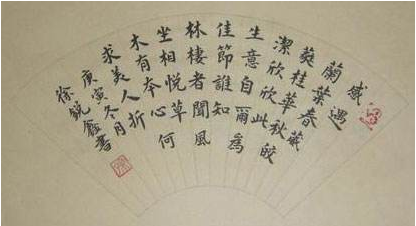 感遇
蘭葉春葳
蕤桂華秋皎
潔欣欣此
生意自爾為
佳節誰知
林棲者聞風
坐相悅草
木有本心何
求美人折
庚寅冬月
徐銳鑫書